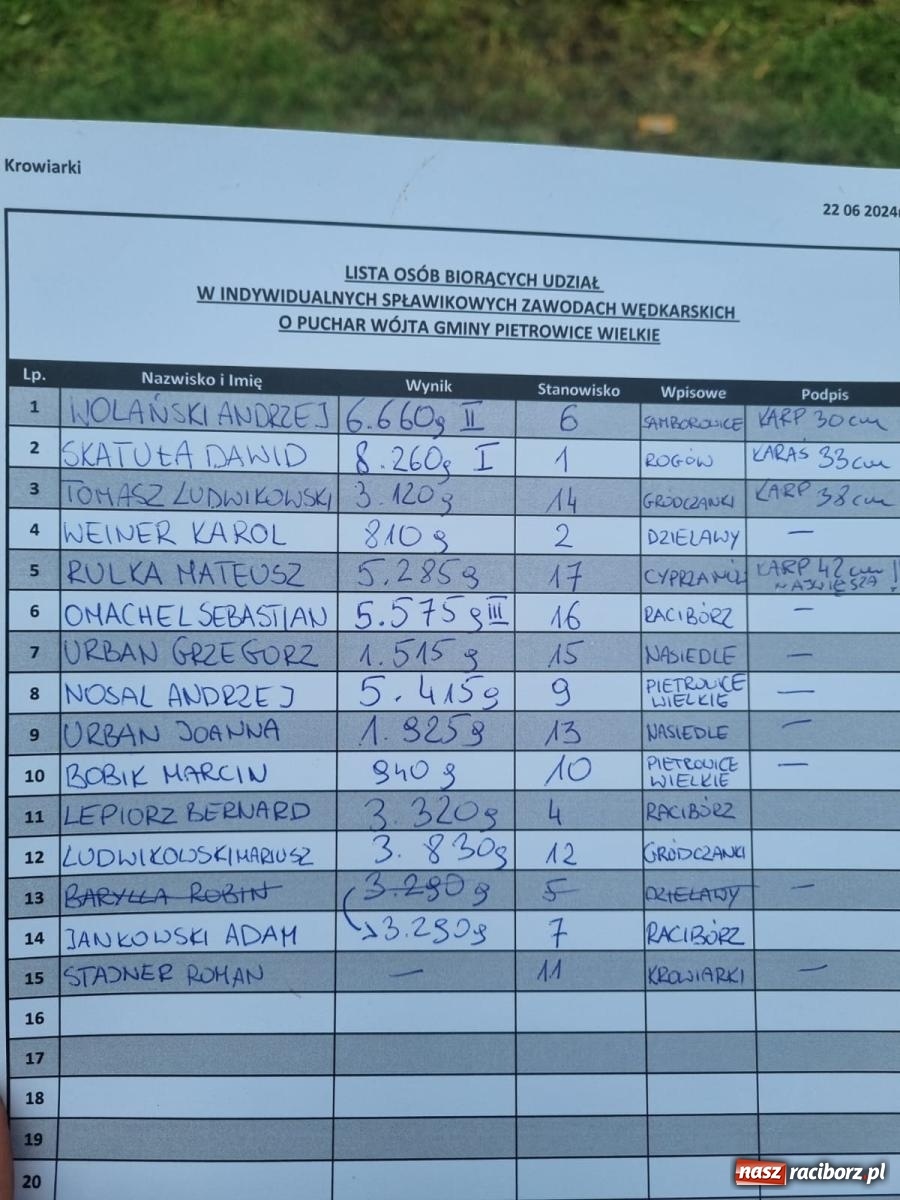 Krowiarki
22 06 2024r
LISTA OSÓB BIORĄCYCH UDZIAŁ
W INDYWIDUALNYCH SPŁAWIKOWYCH ZAWODACH WĘDKARSKICH
O PUCHAR WÓJTA GMINY PIETROWICE WIELKIE
Lp. Nazwisko i Imię Wynik Stanowisko Wpisowe Podpis
1 WOLAŃSKI ANDRZEJ 6.660g II 6 SAMBOROWICE KARP 30cm
2 SKATUŁA DAWID 8.260g I 1 ROGÓW KARAŚ 33cm
3 TOMASZ LUDWIKOWSKI 3.120g 14 GRÓDCZANKI KARP 38cm
4 WEINER KAROL 810g 2 DZIELAWY —
5 RULKA MATEUSZ 5.285g 17 CYPRZANÓW KARP 42cm!
NAJWIĘSZA
6 OMACHEL SEBASTIAN 5.575g III 16 RACIBÓRZ —
7 URBAN GRZEGORZ 1.515g 15 NASIEDLE —
8 NOSAL ANDRZEJ 5.415g 9 PIETROWICE
WIELKIE —
9 URBAN JOANNA 1.925g 13 NASIEDLE —
10 BOBIK MARCIN 940g 10 PIETROWICE
WIELKIE —
11 LEPIORZ BERNARD 3.320g 4 RACIBÓRZ
12 LUDWIKOWSKI MARIUSZ 3.830g 12 GRÓDCZANKI
13 BARYLLA ROBIN 3.290g 5 DZIELAWY —
14 JANKOWSKI ADAM 3.290g 7 RACIBÓRZ
15 STAJNER ROMAN — 11 KROWIARKI —
16
17
18
19
20
nasz raciborz.pl